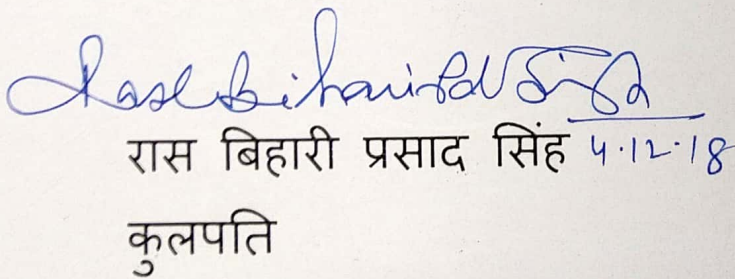 Rasbihari Pd Singh
रास बिहारी प्रसाद सिंह 4.12.18
कुलपति